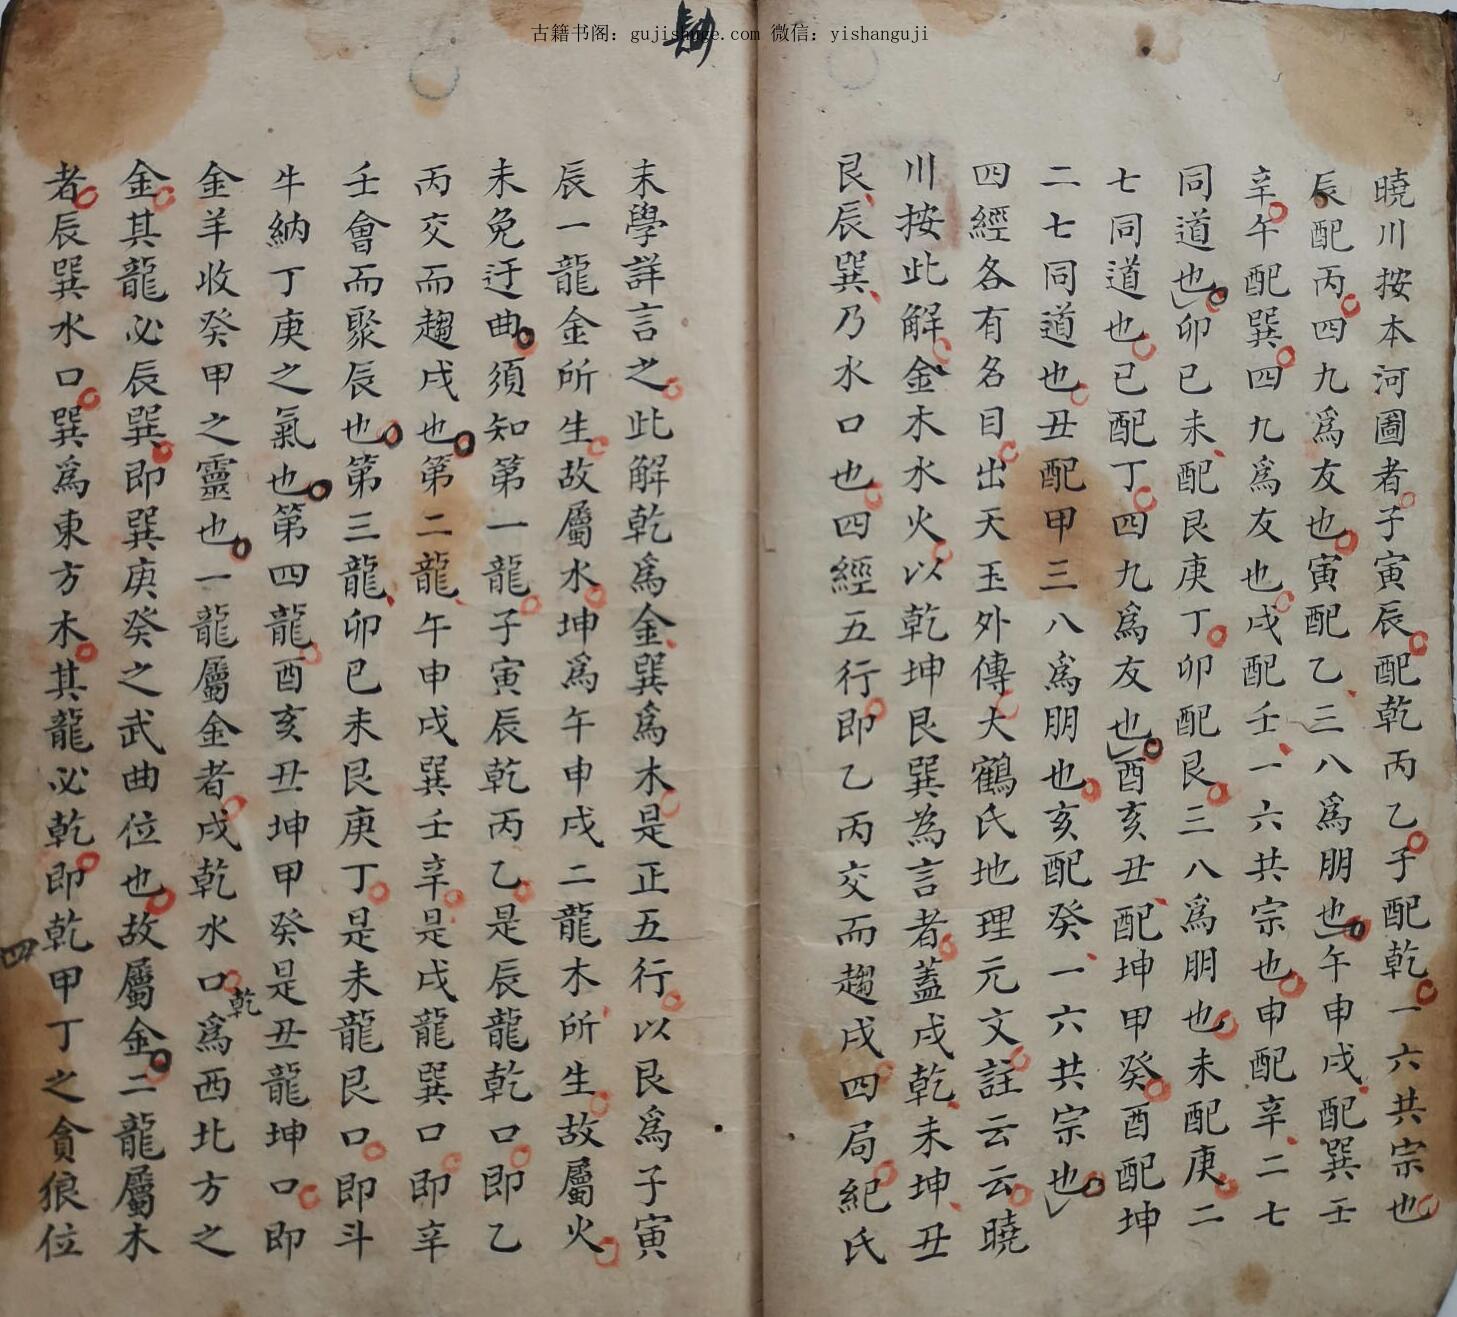 古籍书阁：gujishuge.com 微信：yishanguji
曉川按本河圖者子寅辰配乾丙乙子配乾一六共宗也
辰配丙四九爲友也寅配乙三八爲朋也午申戌配巽壬
辛午配巽四九爲友也戌配壬一六共宗也申配辛二七
同道也卯巳未配艮庚丁卯配艮三八爲朋也未配庚二
七同道也巳配丁四九爲友也酉亥丑配坤甲癸酉配坤
二七同道也丑配甲三八爲朋也亥配癸一六共宗也
四經各有名目出天玉外傳大鶴氏地理元文註云云曉
川按此解金木水火以乾坤艮巽為言者蓋戌乾未坤丑
艮辰巽乃水口也四經五行即乙丙交而趨戌四局紀氏
末學詳言之此解乾爲金巽爲木是正五行以艮爲子寅
辰一龍金所生故屬水坤爲午申戌二龍木所生故屬火
未免迂曲須知第一龍子寅辰乾丙乙是辰龍乾口即乙
丙交而趨戌也第二龍午申戌巽壬辛是戌龍巽口即辛
壬會而聚辰也第三龍卯巳未艮庚丁是未龍艮口即斗
牛納丁庚之氣也第四龍酉亥丑坤甲癸是丑龍坤口即
金羊收癸甲之靈也一龍屬金者戌乾水口乾爲西北方之
金其龍必辰巽即巽庚癸之武曲位也故屬金二龍屬木
者辰巽水口巽爲東方木其龍必乾即乾甲丁之貪狼位
四